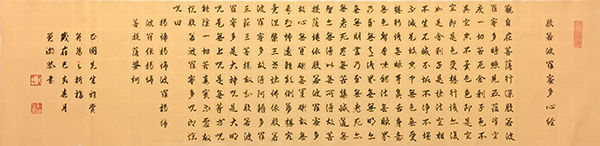 般若波羅蜜多心經
觀自在菩薩行深般若波
羅蜜多時照見五蘊皆空
度一切苦厄舍利子色不
異空空不異色色即是空
空即是色受想行識亦復
如是舍利子是諸法空相
不生不滅不垢不淨不增
不減是故空中無色無受
想行識無眼耳鼻舌身意
無色聲香味觸法無眼界
乃至無意識界無無明亦
無無明盡乃至無老死亦
無老死盡無苦集滅道無
智亦無得以無所得故菩
提薩埵依般若波羅蜜多
故心無罣礙無罣礙故無
有恐怖遠離顛倒夢想究
竟涅槃三世諸佛依般若
波羅蜜多故得阿耨多羅
三藐三菩提故知般若波
羅蜜多是大神呪是大明
呪是無上呪是無等等呪
能除一切苦真實不虛故
說般若波羅蜜多呪即說
呪曰
揭諦揭諦波羅揭諦
波羅僧揭諦
菩提薩婆訶
先生雅賞
歲在己亥春月
書